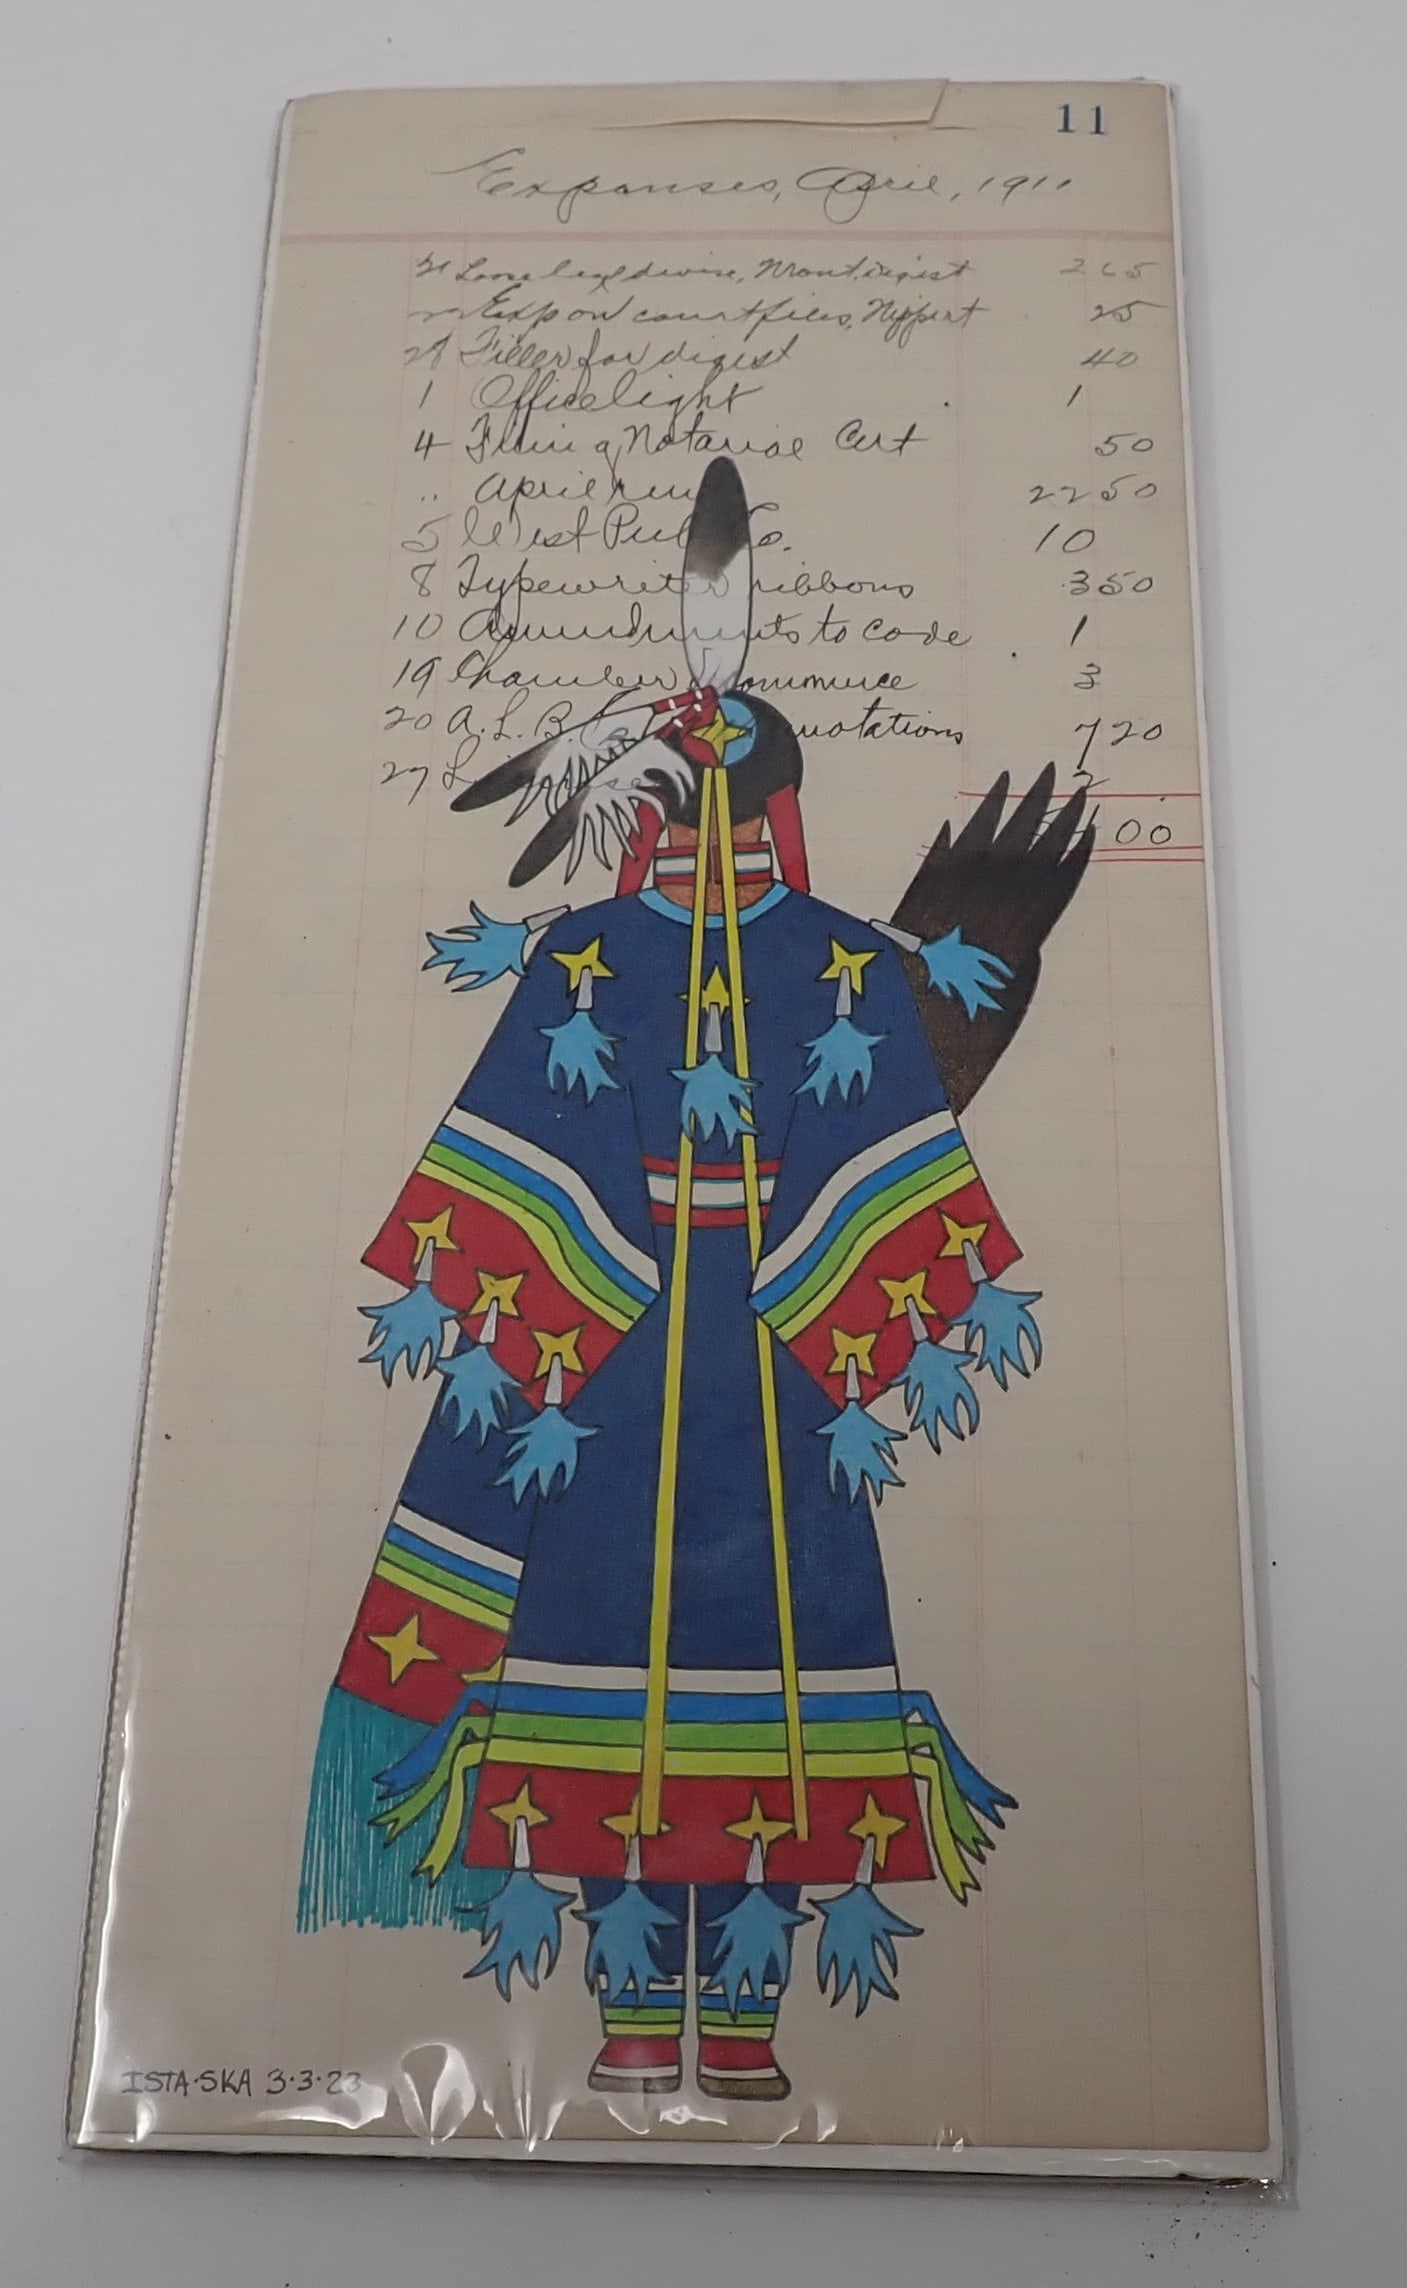 11
Expenses, April, 1911
Loose leaf device, Mont. Digest 265
Exp on court files, Nippert 25
Filler for digest 40
1 Office light 1
4 Filing Notarial Cert 50
.. April 2250
5 West Pub Co. 10
8 Typewriter ribbons 350
10 Amendments to Code 1
19 Chamber Commerce 3
20 A.L.B. 720
27 2
00
ISTA·SKA 3·3·23